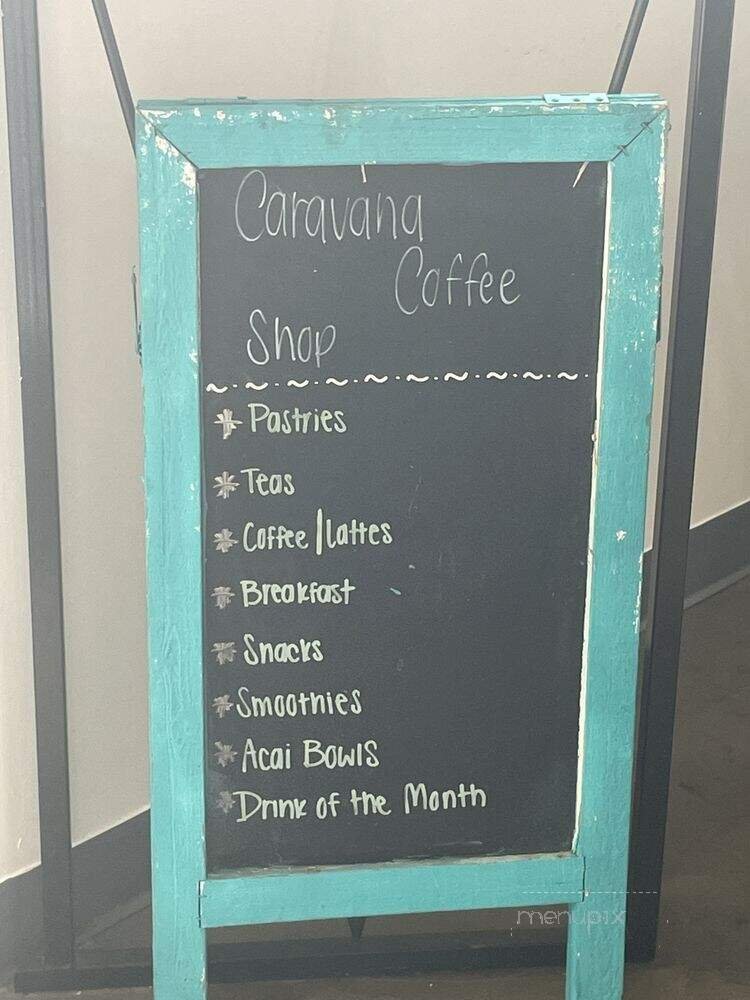 Caravana
Coffee
Shop
Pastries
Teas
Coffee/Lattes
Breakfast
Snacks
Smoothies
Acai Bowls
Drink of the Month
menupix